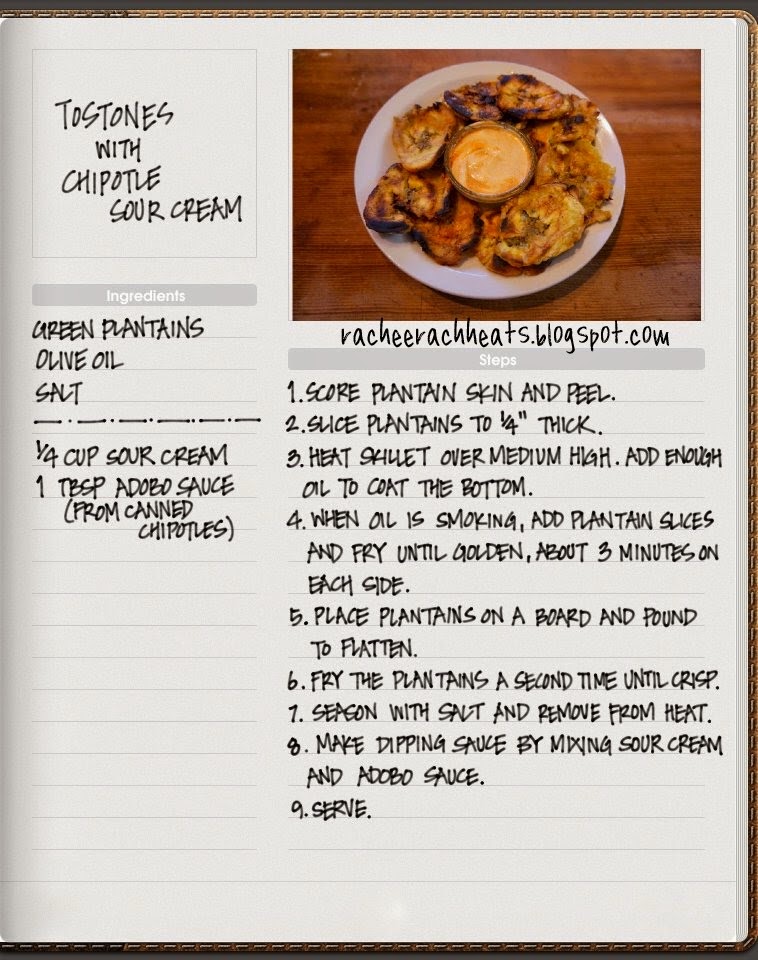 TOSTONES
WITH
CHIPOTLE
SOUR CREAM
Ingredients
GREEN PLANTAINS
OLIVE OIL
SALT
1/4 CUP SOUR CREAM
1 TBSP ADOBO SAUCE
(FROM CANNED
CHIPOTLES)
racheerachheats.blogspot.com
Steps
1. SCORE PLANTAIN SKIN AND PEEL.
2. SLICE PLANTAINS TO 1/4" THICK.
3. HEAT SKILLET OVER MEDIUM HIGH. ADD ENOUGH
OIL TO COAT THE BOTTOM.
4. WHEN OIL IS SMOKING, ADD PLANTAIN SLICES
AND FRY UNTIL GOLDEN, ABOUT 3 MINUTES ON
EACH SIDE.
5. PLACE PLANTAINS ON A BOARD AND POUND
TO FLATTEN.
6. FRY THE PLANTAINS A SECOND TIME UNTIL CRISP.
7. SEASON WITH SALT AND REMOVE FROM HEAT.
8. MAKE DIPPING SAUCE BY MIXING SOUR CREAM
AND ADOBO SAUCE.
9. SERVE.